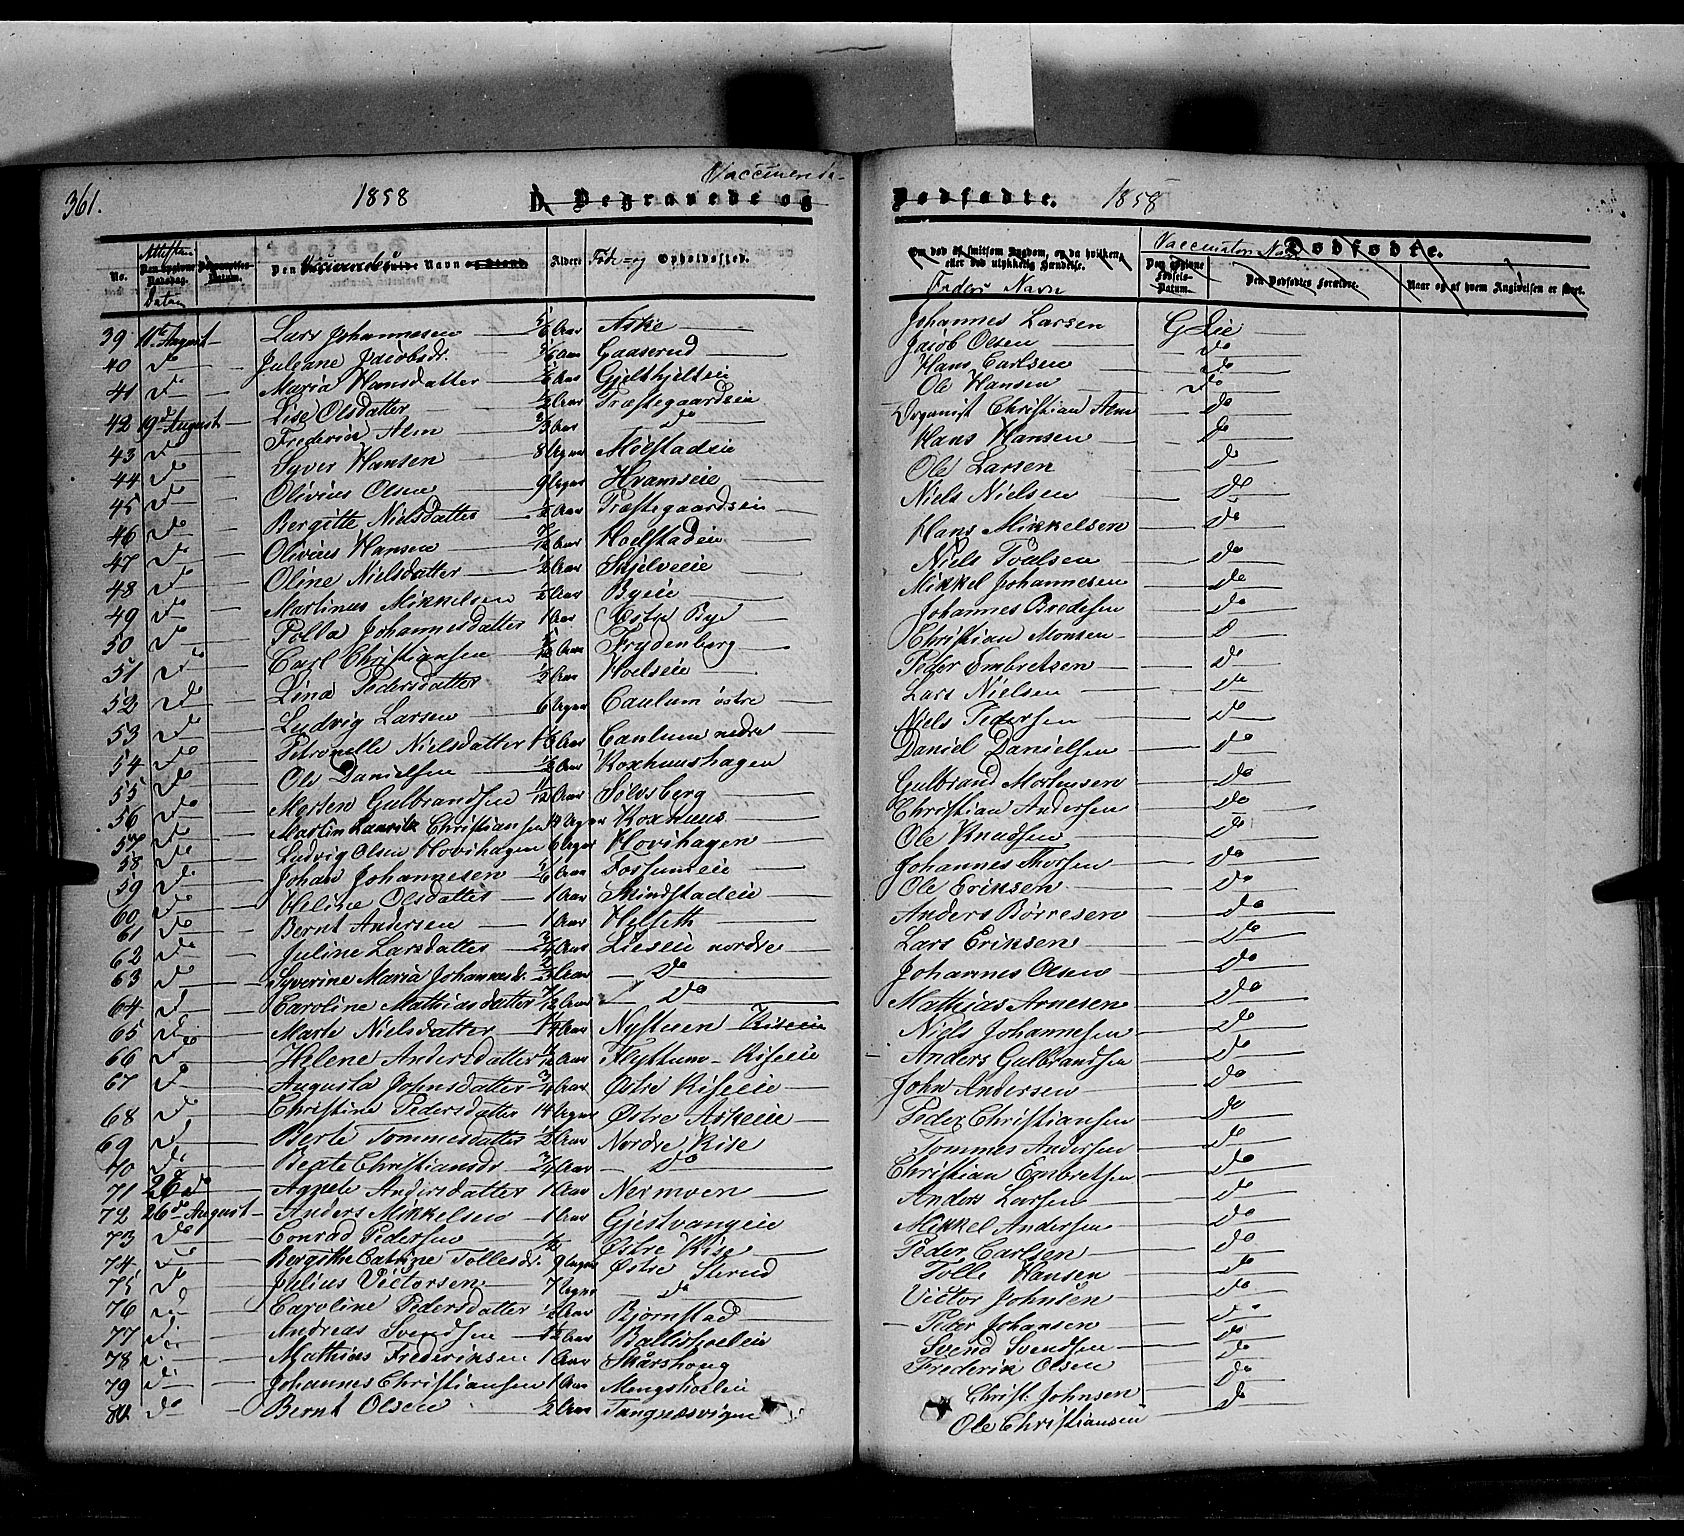 361.
1858
Vaccinerede
D. Begravede og
Dødfødte.
1858
No.
Attesten
Datum
Den Navn og Stand
Alder
Føde- og Opholdssted.
Om død af smitsom Sygdom, og da hvilken, eller ved ulykkelig Hændelse.
Faders Navn
Vaccinators Navn
Dødfødte.
Den opgivne Fødsels-Datum.
Den Dødfødtes Forældre.
Naar og af hvem Angivelsen er skeet.
39 11te August Lars Johannesen 5/6 Aar Aske Johannes Larsen G Lie
40 do Juliane Jacobsdr. 5/6 Aar Gaaserud Jacob Olsen do
41 do Maria Hansdatter Aar Hans Carlsen do
Lise Olsdatter 1/2 Aar Præstegaardseie Ole Hansen do
42 19de August Frederik Alm 2/3 Aar do Organist Christian Alm do
43 do Syver Hansen 8 Uger Mostadeie Hans Hansen do
44 do Olivius Olsen 9 Uger Hramseie Ole Larsen do
45 do Bergitte Nielsdatter 1/2 Aar Præstegaardseie Niels Nielsen do
46 do Olivius Hansen 7/12 Aar Hoelstadeie Hans Mikkelsen do
47 do Oline Nielsdatter 1/2 Aar Skjelveeie Niels do
48 do Martinus Mikkelsen 1/2 Aar Byeie Mikkel Johannesen do
49 do Johannesdatter 1 Aar Østre Bye Johannes Bredesen do
50 do Carl Christiansen Aar Frydenberg Christian Monsen d
51 do Lina Pedersdatter 1/2 Aar Hoelseie Peder Embretsen do
52 do Ludvig Larsen 6 Uger Caulum østre Lars Nielsen do
53 do Petronelle Nielsdatter Aar Caulum nedre Niels Pedersen do
54 do Ole Danielsen Aar Koxhuushagen Daniel Danielsen do
55 do Morten Gulbrandsen Aar Solvsberg Gulbrand Mortensen do
56 do Martin Laurits Christiansen Uger Koxhuus Christian Andersen do
57 do Ludvig Olsen Hovihagen 6 Uger Hovihagen Ole Knudsen do
58 do Johan Johannesen 5/6 Aar Fossumeie Johannes Thorsen do
59 do Heline Olsdatter 1 Aar Skindstadeie Ole Eriksen do
60 do Bernt Andersen 1 Aar Helseth Anders Børresen do
61 do Juline Larsdatter 3/4 Aar Lieseie nordre Lars Eriksen do
62 do Syverine Maria Johannesdr. 2/3 Aar do Johannes Olsen do
63 do Caroline Mathiasdatter 7/12 Aar do Mathias Arnesen do
64 do Marte Nielsdatter 1/4 Aar Nystuen Riseeie Niels Johannesen do
65 do Helene Andersdatter Aar Flyttum-Riseeie Anders Gulbrandsen do
66 do Augusta Johnsdatter 3/4 Aar Østre Riseeie John Andersen do
67 do Christine Pedersdatter 14 Uger Østre Askeeie Peder Christiansen do
68 do Berte Tommesdatter 1/2 Aar Nordre Rise Tommes Andersen do
69 do Beate Christiansdr. 3/4 Aar do Christian Embretsen do
70 do Agnete Andersdatter 1 Aar Nermoen Anders Larsen do
71 26 do Anders Mikkelsen 1 Aar Gjestvangeie Mikkel Andersen do
72 26de August Conrad Pedersen 1/2 Østre Rise Peder Carlsen do
73 do Bergithe Catrine Tollesdr. 9 Uger Østre Sterud Tolle Hansen do
74 do Julius Victorsen 7 Uger do Victor Johnsen do
75 do Caroline Pedersdatter 1/2 Aar Bjørnstad Peder Johansen do
76 do Andreas Svendsen Aar Ballishoeleie Svend Svendsen do
77 do Mathias Frederiksen 1 Aar Skårshoug Frederik Olsen do
78 do Johannes Christiansen 1 Aar Mengshoeleie Christ. Johnsen do
79 do Bernt Olsen 1/2 Aar Tangnæsvigen Ole Christiansen do
80 do